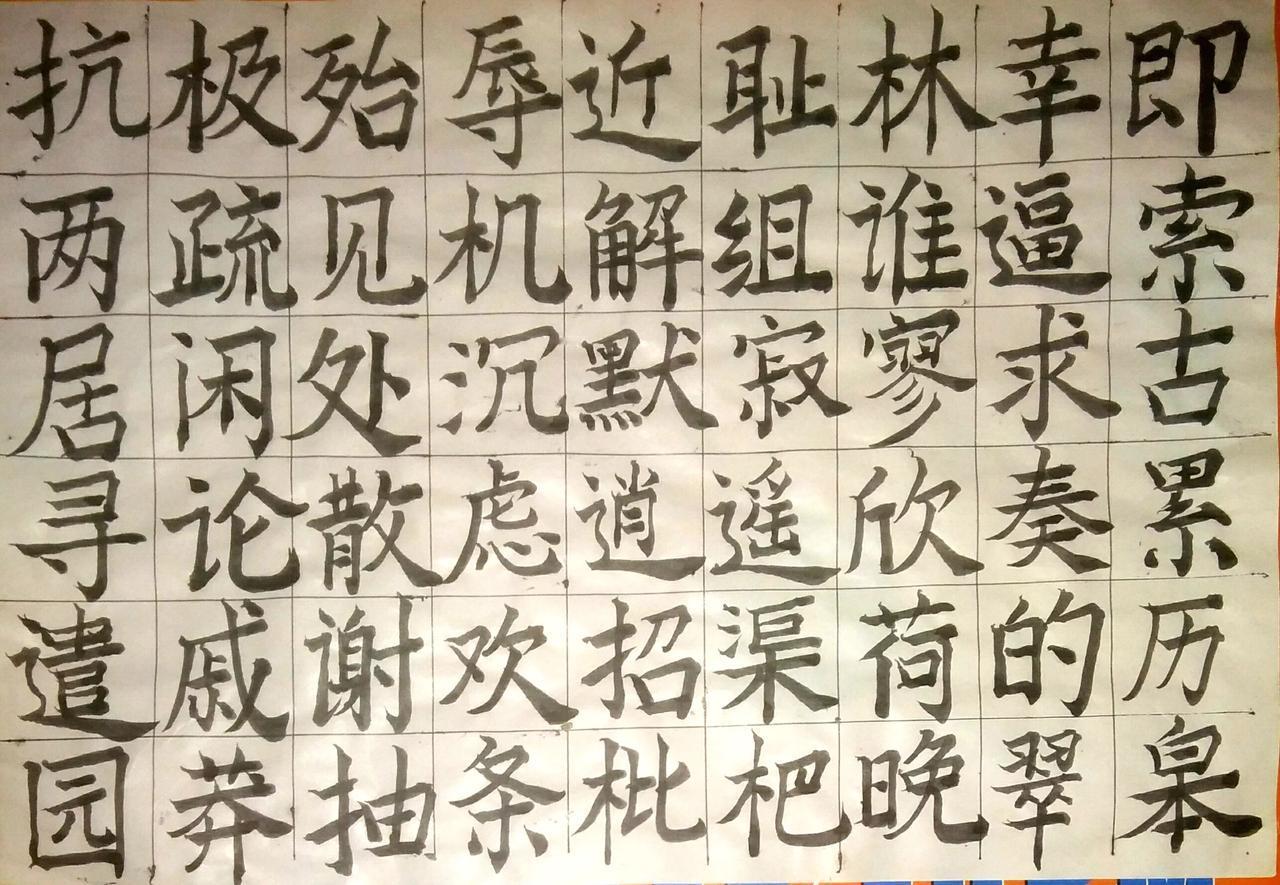 抗极殆辱近耻林幸即
两疏见机解组谁逼索
居闲处沉默寂寥求古
寻论散虑逍遥欣奏累
遣戚谢欢招渠荷的历
园莽抽条枇杷晚翠皋